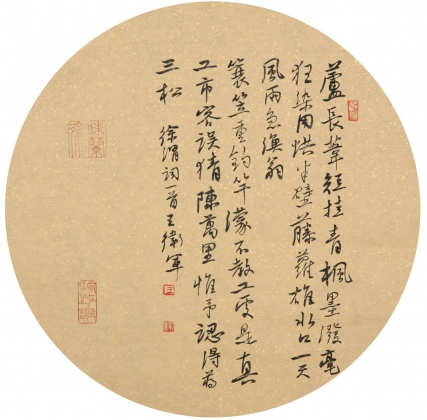 蘆長葦短挂青楓墨潑毫
狂染用烘半壁藤蘿雄水口一天
風雨急漁翁
蓑笠重釣竿濛不教工處是真
工市客誤猜陳萬里惟予認得蔣
三松 徐渭詞一首王衛軍